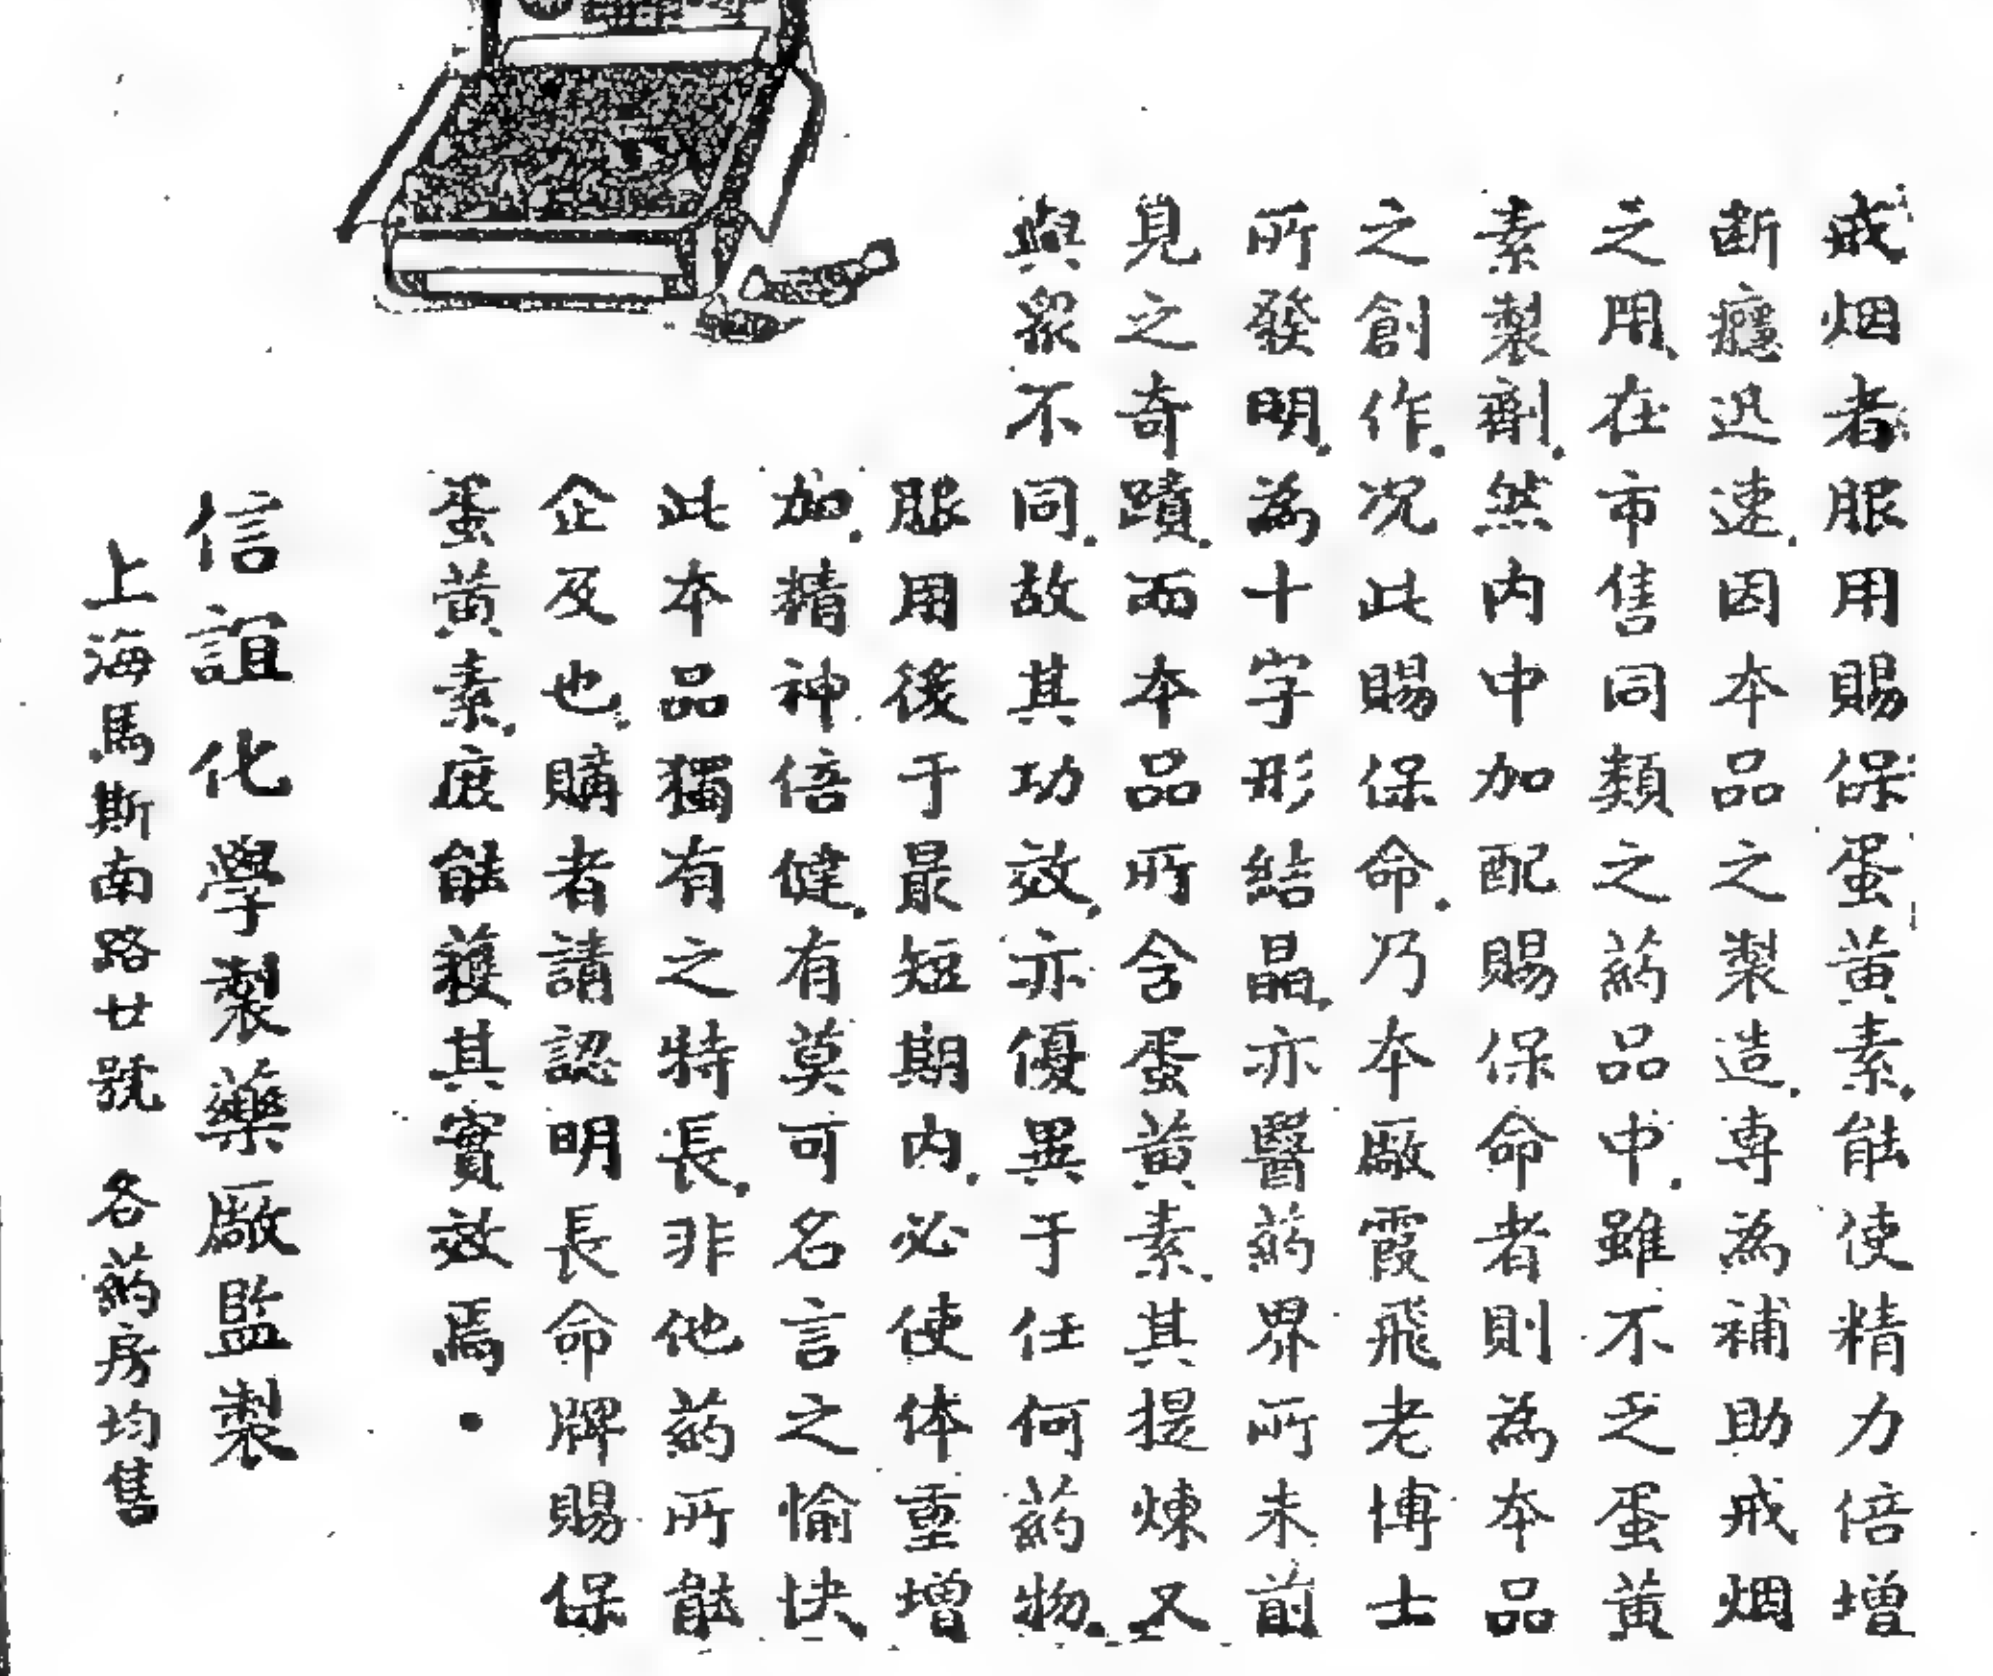 戒烟者服用賜保蛋黄素.能使精力倍增
断癮迅速.因本品之製造.專為補助戒烟
之用.在市售同類之葯品中.雖不乏蛋黄
素製劑.然内中加配賜保命者則為本品
之創作.况此賜保命.乃本廠霞飛老博士
所發明.為十字形結晶.亦醫葯界所未前
見之奇蹟.而本品所含蛋黄素.其提煉又
與衆不同.故其功效.亦優異于任何葯物.
服用後于最短期内.必使体重增
加.精神倍健.有莫可名言之愉快
此本品獨有之特長.非他葯所能
企及也.購者請認明長命牌賜保
蛋黄素.庶能獲其實效焉.
信誼化學製藥廠監製
上海馬斯南路廿號 各葯房均售